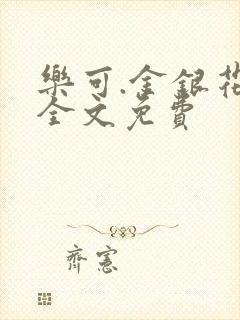 樂可.金銀花
全文免費
齊憲